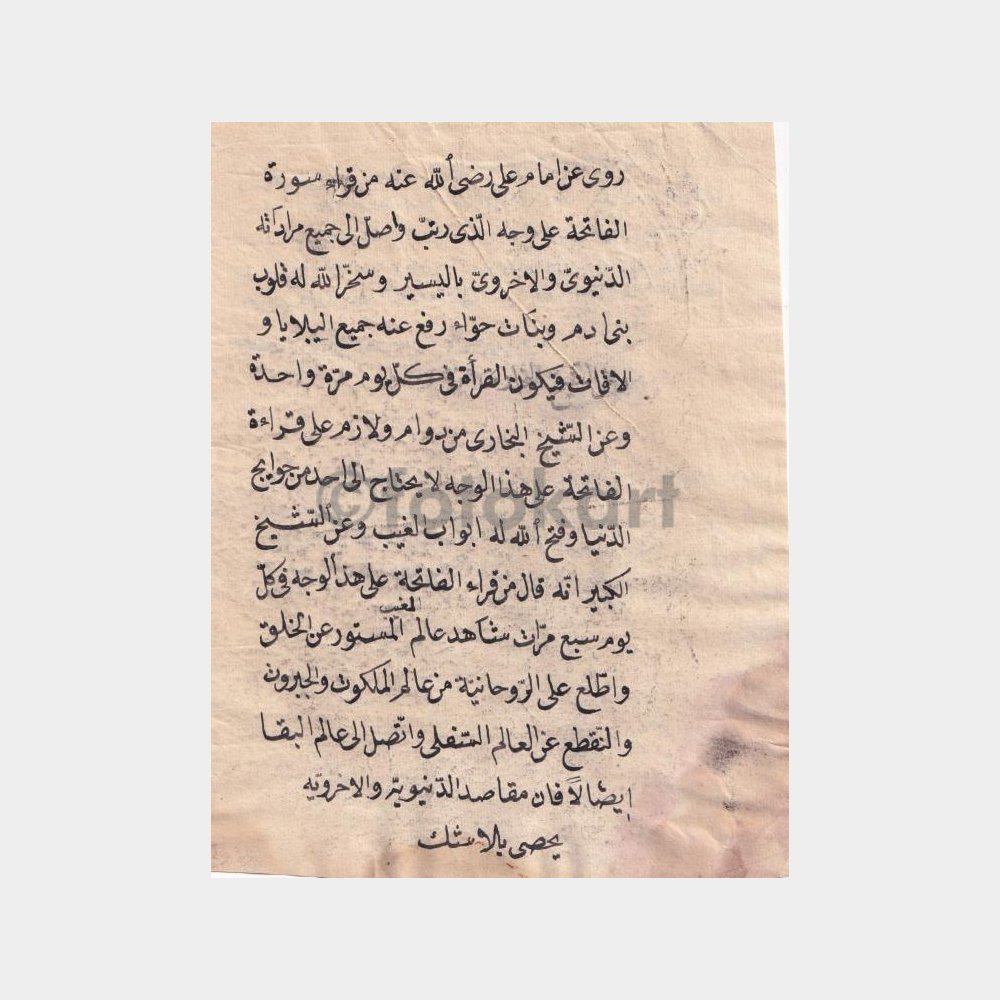 روى عن امام على رضى الله عنه من قراء سورة
الفاتحة على وجه الّذى رتبّ واصل الى جميع مراداته
الدّنيوىّ والاخروىّ باليسير وسخّر الله له قلوب
بنى ادم وبنات حوّاء رفع عنه جميع البلايا و
الافات فيكون القرأة فى كلّ يوم مرّة واحدة
وعن الشّيخ البخارى من دوام ولازم على قراءة
الفاتحة على هذا الوجه لا يحتاج الى احد من حوايج
الدّنيا وفتح الله له ابواب لغيب وعن الشّيخ
الكبير انّه قال من قراء الفاتحة على هذ الوجه فى كلّ
يوم سبع مرّات شاهد عالم المغيب المستور عن الخلق
واطّلع على الرّوحانيّة من عالم الملكوت والجبروت
والنّقطع عن العالم السّفلى واتّصل الى عالم البقا
ايصّالاً فان مقاصد الدّنيويّه والاخرويّه
يحصى بلا شك
©fotokart